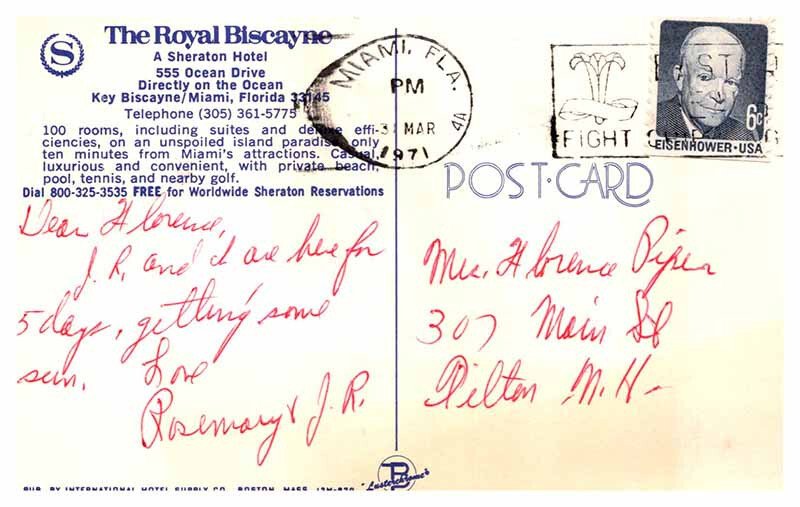 S
The Royal Biscayne
A Sheraton Hotel
555 Ocean Drive
Directly on the Ocean
Key Biscayne/Miami, Florida 33145
Telephone (305) 361-5775
100 rooms, including suites and deluxe effi-
ciencies, on an unspoiled island paradise only
ten minutes from Miami's attractions. Casual,
luxurious and convenient, with private beach,
pool, tennis, and nearby golf.
Dial 800-325-3535 FREE for Worldwide Sheraton Reservations
MIAMI, FLA.
PM
31 MAR
1971
4A
FIGHT
6c
EISENHOWER·USA
POST·CARD
Dear Florence,
J.R. and I are here for
5 days, getting some
sun. Love
Rosemary & J.R.
Mrs. Florence Piper
307 Main St
Tilton N.H.
PUB. BY INTERNATIONAL HOTEL SUPPLY CO. BOSTON, MASS.
"Lusterchrome"